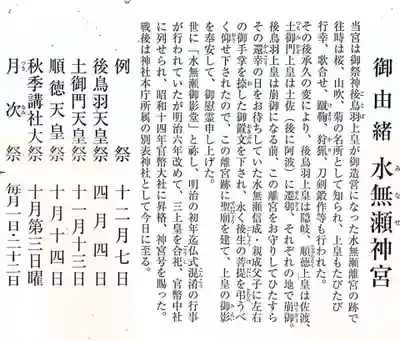 御由緒 水無瀬神宮
みなせ
当宮は御祭神後鳥羽上皇が御造営になった水無瀬離宮の跡で
往時は桜、山吹、菊の名所として知られ、上皇もたびたび
行幸、歌合せ、蹴鞠、狩猟、刀剣鍛作等も行われた。
その後承久の変により、後鳥羽上皇は隠岐、順徳上皇は佐渡、
土御門上皇は土佐（後に阿波）に遷御、それぞれの地で崩御。
後鳥羽上皇は崩御になる前、この離宮をお守りしてひたすら
その還幸の日をお待ちしていた水無瀬信成・親成父子に左右
の御手掌を捺した御置文を下され、永く後生の菩提を弔うべ
く仰せ下されたので、この離宮跡に聖廟を建て、上皇の御影
を遷安して、御慰霊申し上げた。
世に「水無瀬御影堂」と称し、明治の初年迄仏式混淆の行事
が行われていたが明治六年改めて、三上皇を合祀、官幣中社
に列せられ、昭和十四年官幣大社に昇格、神宮号を賜った。
戦後は神社本庁所属の別表神社として今日に至る。
例祭 十二月七日
後鳥羽天皇祭 四月四日
土御門天皇祭 十一月十三日
順徳天皇祭 十月十四日
秋季講社大祭 十月第三日曜
月次祭 毎月一日・二十二日